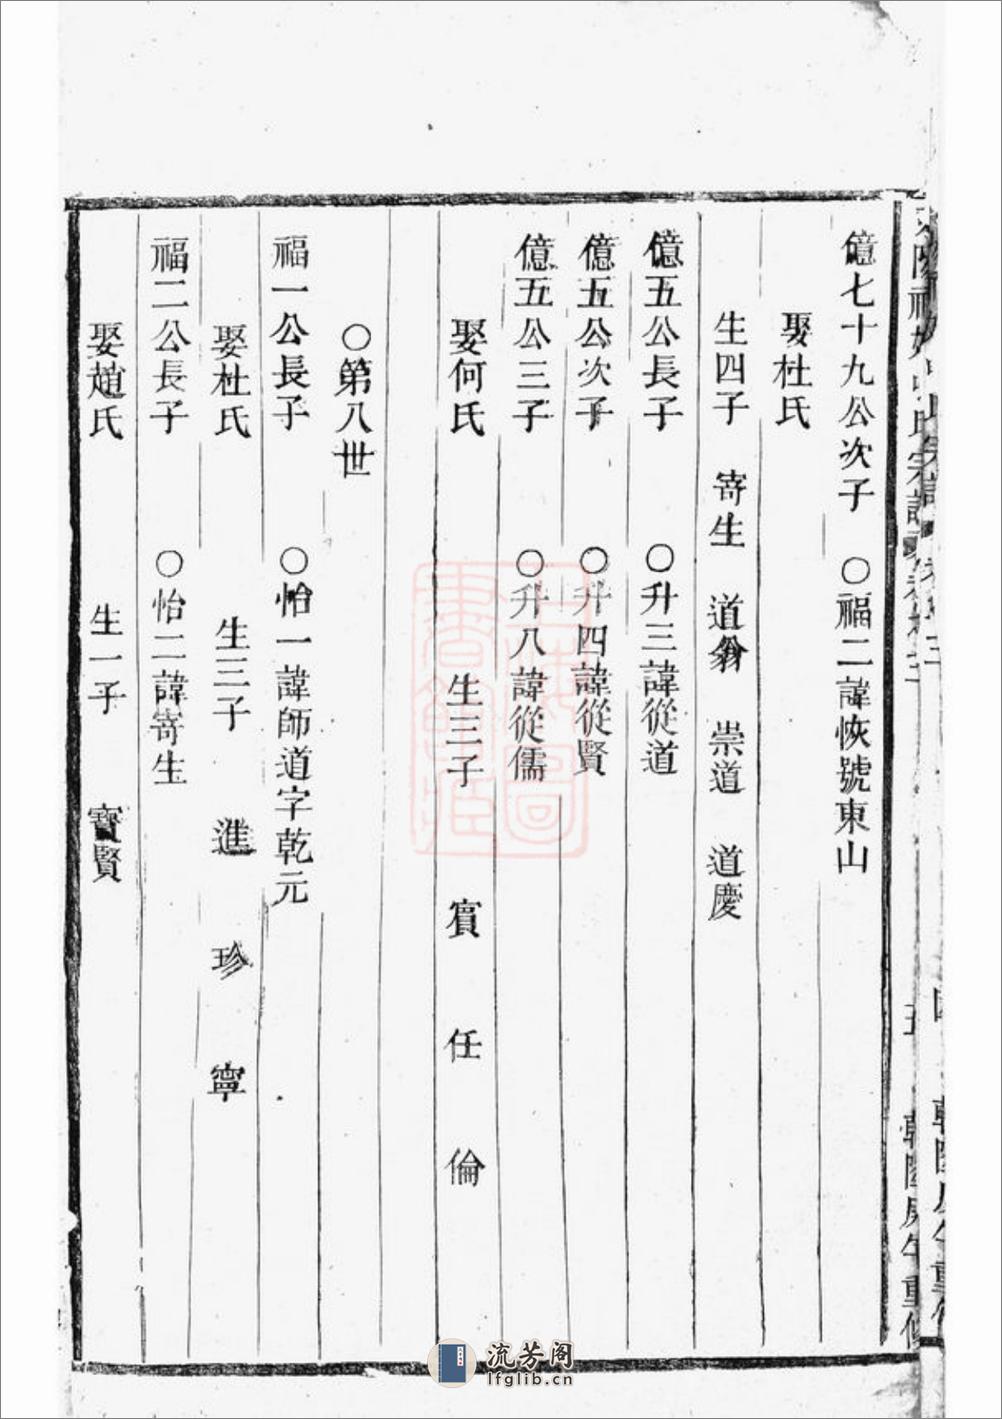 億七十九公次子　○福二諱恢號東山
娶杜氏
生四子　寄生　道翁　崇道　道慶
億五公長子　○升三諱從道
億五公次子　○升四諱從賢
億五公三子　○升八諱從儒
娶何氏　生三子　賓　任　倫
○第八世
福一公長子　○怡一諱師道字乾元
娶杜氏　生三子　進　珍　寧
福二公長子　○怡二諱寄生
娶趙氏　生一子　寶賢
流芳阁
lfglib.cn